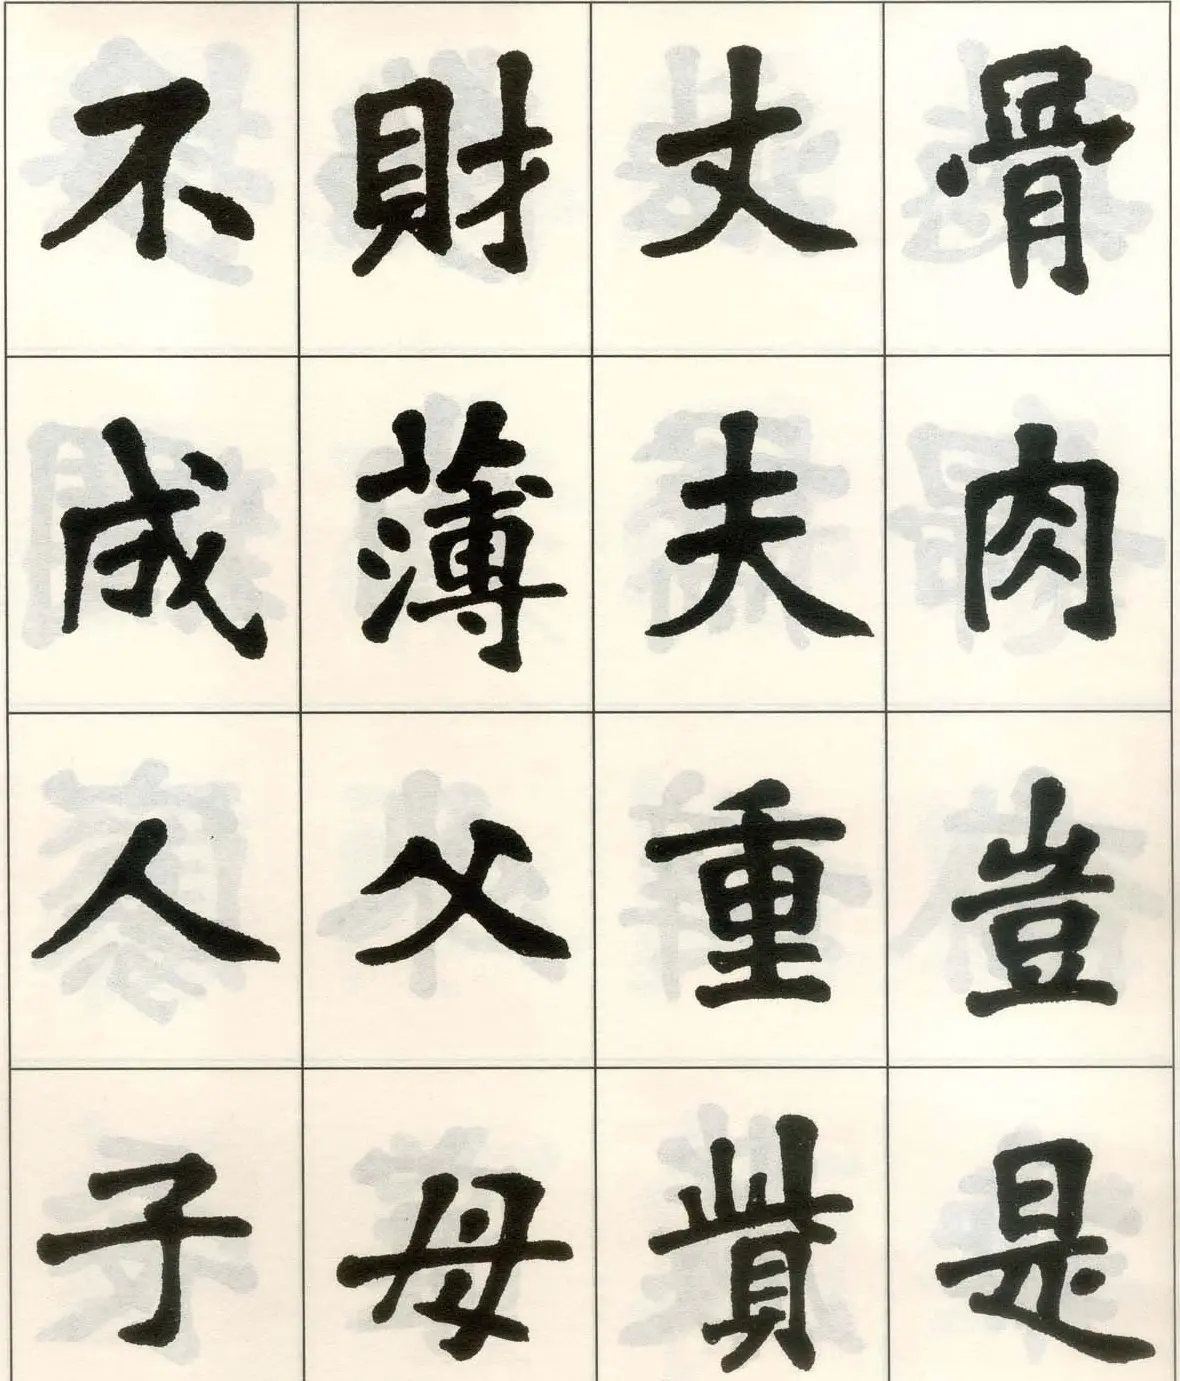 骨肉豈是
丈夫重貲
財薄父母
不成人子